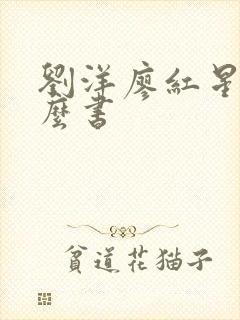 劉洋廖紅星
麼書
貧道花猫子